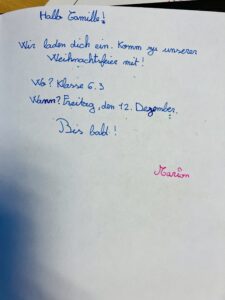 Hallo Camille!
Wir laden dich ein. Komm zu unserer
Weihnachtsfeier mit!
Wo? Klasse 6.3
Wann? Freitag, den 12. Dezember.
Bis bald!
Marion